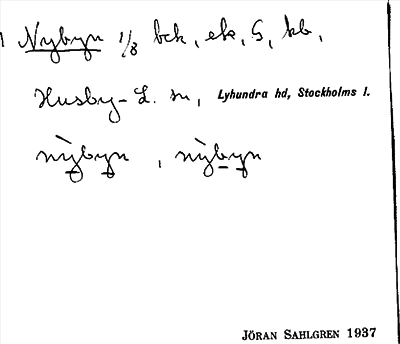 1 Nybyn 1/8 bck, ek, G, kb,
Husby-L. sn, Lyhundra hd, Stockholms l.
nỳbyn, nỳbyn
JÖRAN SAHLGREN 1937